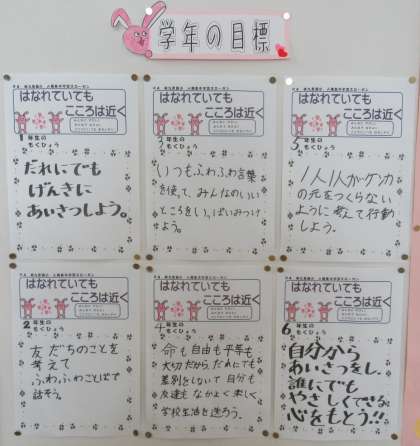 学年の目標
はなれていても
こころは近く
1年生の
もくひょう
だれにでも
げんきに
あいさつしよう。
はなれていても
こころは近く
3年生の
もくひょう
いつもふわふわ言葉
を使って、みんなのいい
ところをいっぱいみつけ
よう。
はなれていても
こころは近く
5年生の
もくひょう
1人1人がケンカ
の元をつくらない
ように考えて行動
しよう。
はなれていても
こころは近く
2年生の
もくひょう
友だちのことを
考えて
ふわふわことばで
話そう。
はなれていても
こころは近く
4年生の
もくひょう
命も自由も平等も
大切だから だれにでも
差別をしないで 自分も
友達も なかよく楽しく
学校生活を送ろう。
はなれていても
こころは近く
6年生の
もくひょう
自分から
あいさつをし、
誰にでも
やさしくできる
心をもとう!!